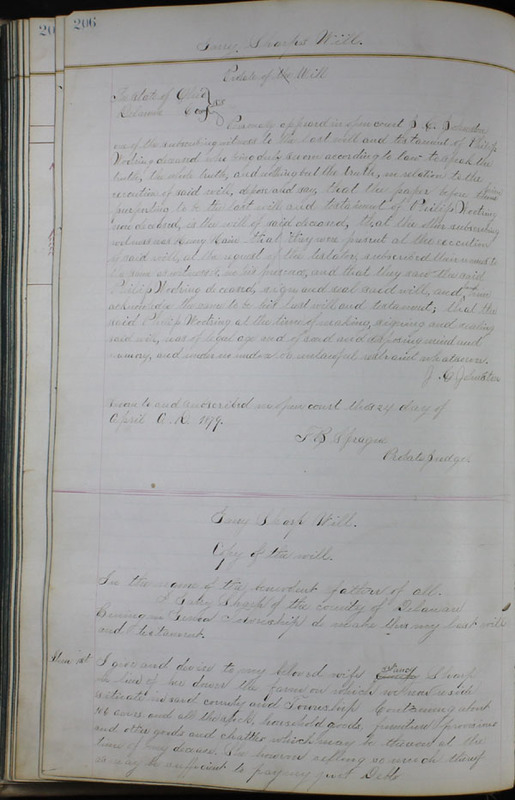 206
Sharp's Will.
Probate of the Will
The State of Ohio
Delaware Co } ss
Personally appeared in open court J. C. Johnston
one of the subscribing witness to the last will and testament of Philip
Wooting deceased who being duly sworn according to law to speak the
truth, the whole truth, and nothing but the truth, in relation to the
execution of said will, depose and say, that the paper before
purporting to be the last will and testament of Philip Wooting
now deceased, is the will of said deceased, that the other subscribing
witness was Henry that they were present at the execution
of said will, at the request of the testator, subscribed their names to
the same as witnesses in his presence, and that they saw the said
Philip Wooting deceased, sign and seal said will, and
acknowledge the same to be his last will and testament; that the
said Philip Wooting at the time of making, signing and sealing
said will, was of legal age and of sound and disposing mind and
memory, and under no undue or unlawful restraint whatsoever.
J. C. Johnston
Sworn to and subscribed in open court this 24 day of
April A.D. 1879.
T B Sprague
Probate Judge
Sharp Will.
Copy of the will.
In the name of the benevolent father of all.
I Sharp of the county of Delaware
Township do make this my last will
and Testament.
Item 1st I give and devise to my beloved wife Nancy Sharp
in lieu of her dower the farm on which we now reside
situate in said county and Township Containing about
106 acres and all the stock, household goods, furniture provisions
and other goods and chattles which may be thereon at the
time of my decease. She however selling so much thereof
as may be sufficient to pay my just Debts